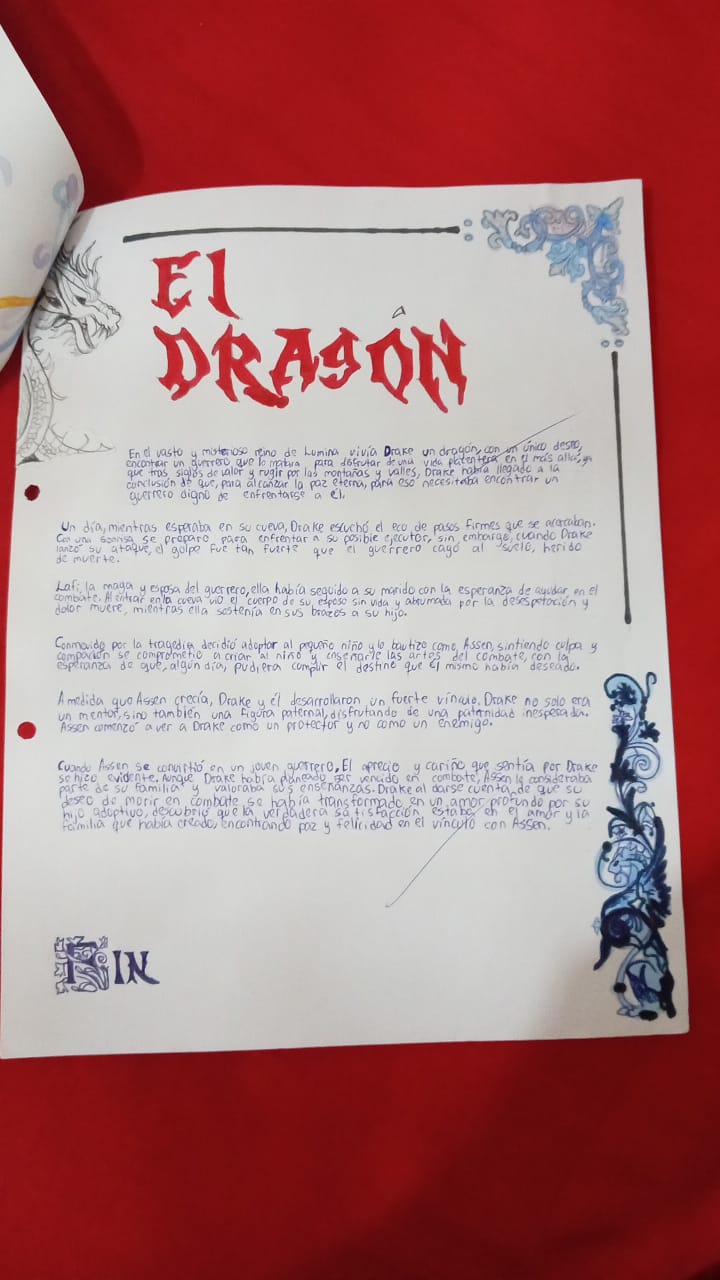 El
DRAGÓN
En el vasto y misterioso reino de Lumina vivía Drake un dragón, con un único deseo,
encontrar un guerrero que lo matara para disfrutar de una vida placentera en el más allá, ya
que tras siglos de valor y rugir por las montañas y valles, Drake había llegado a la
conclusión de que, para alcanzar la paz eterna, para eso necesitaba encontrar un
guerrero digno de enfrentarse a él.
Un día, mientras esperaba en su cueva, Drake escuchó el eco de pasos firmes que se acercaban.
Con una sonrisa se preparo para enfrentar a su posible ejecutor, sin embargo, cuando Drake
lanzó su ataque, el golpe fue tan fuerte que el guerrero cayó al suelo, herido
de muerte.
Lafi, la maga y esposa del guerrero, ella había seguido a su marido con la esperanza de ayudar en el
combate. Al entrar en la cueva vio el cuerpo de su esposo sin vida y abrumada por la desesperación y
dolor muere, mientras ella sostenía en sus brazos a su hijo.
Conmovido por la tragedia decidió adoptar al pequeño niño y lo bautizo como, Assen, sintiendo culpa y
compasión se comprometió a criar al niño y enseñarle las artes del combate, con la
esperanza de que, algún día, pudiera cumplir el destino que él mismo había deseado.
A medida que Assen crecía, Drake y él desarrollaron un fuerte vínculo. Drake no solo era
un mentor, sino también una figura paternal, disfrutando de una paternidad inesperada.
Assen comenzó a ver a Drake como un protector y no como un enemigo.
Cuando Assen se convirtió en un joven guerrero, El aprecio y cariño que sentía por Drake
se hizo evidente. Aunque Drake había planeado ser vencido en combate, Assen lo consideraba
parte de su familia y valoraba sus enseñanzas. Drake al darse cuenta de que su
deseo de morir en combate se había transformado en un amor profundo por su
hijo adoptivo, descubrió que la verdadera satisfacción estaba en el amor y la
familia que había creado, encontrando paz y felicidad en el vínculo con Assen.
FIN